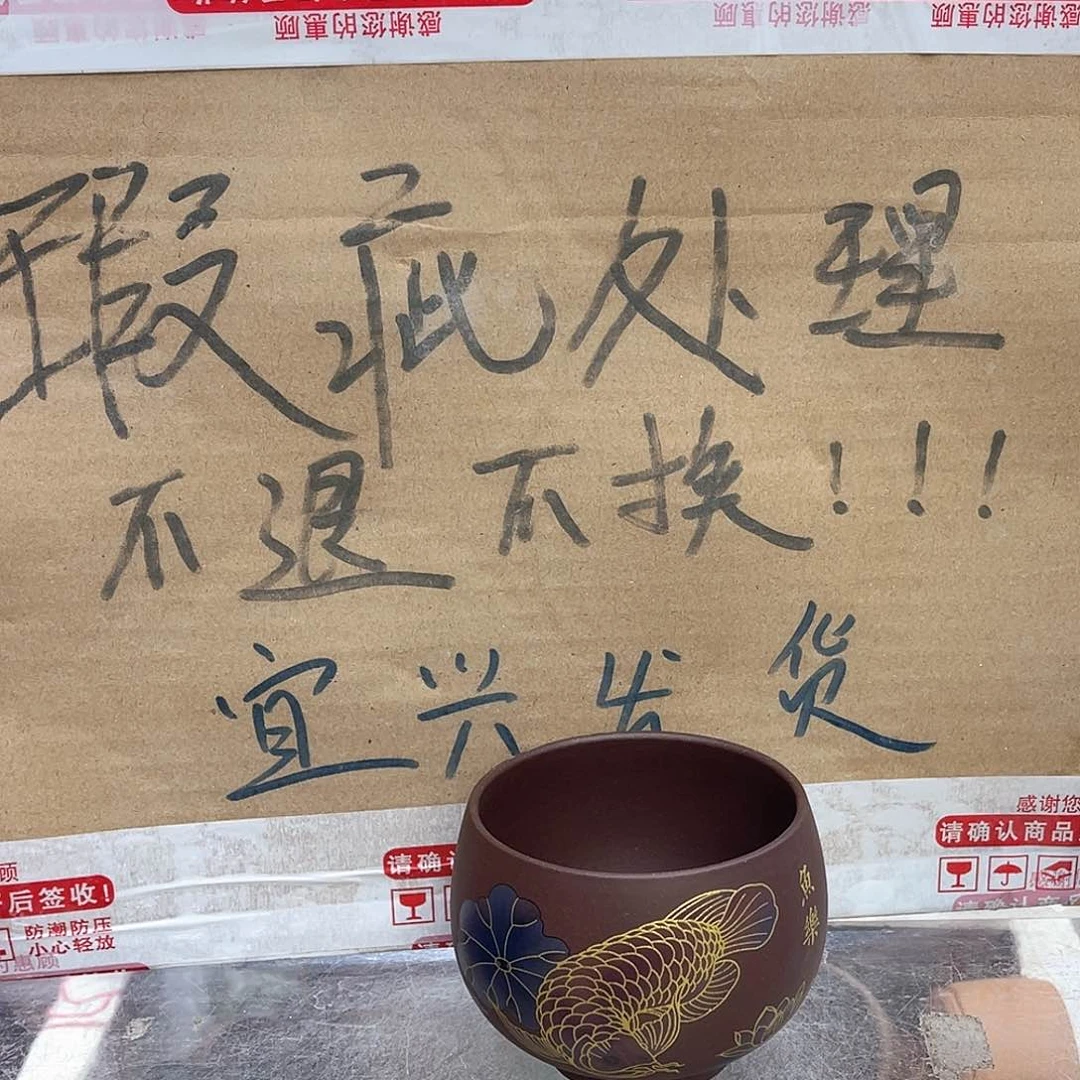 感谢您的惠顾 感谢您的惠顾 感谢您的惠顾
瑕疵处理
不退不换!!!
宜兴发货
感谢您
请确认商品
请确
后签收!
防潮防压
小心轻放
惠顾
魚樂